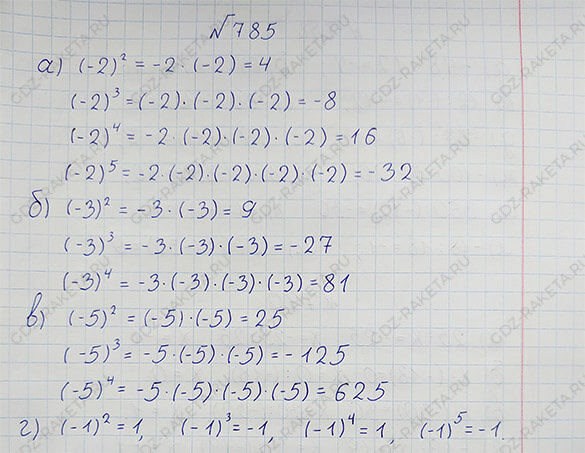 №785
а) (-2)² = -2 · (-2) = 4
(-2)³ = (-2) · (-2) · (-2) = -8
(-2)⁴ = -2 · (-2) · (-2) · (-2) = 16
(-2)⁵ = -2 · (-2) · (-2) · (-2) · (-2) = -32
б) (-3)² = -3 · (-3) = 9
(-3)³ = -3 · (-3) · (-3) = -27
(-3)⁴ = -3 · (-3) · (-3) · (-3) = 81
в) (-5)² = (-5) · (-5) = 25
(-5)³ = -5 · (-5) · (-5) = -125
(-5)⁴ = -5 · (-5) · (-5) · (-5) = 625
г) (-1)² = 1, (-1)³ = -1, (-1)⁴ = 1, (-1)⁵ = -1.
GDZ-RAKETA.RU